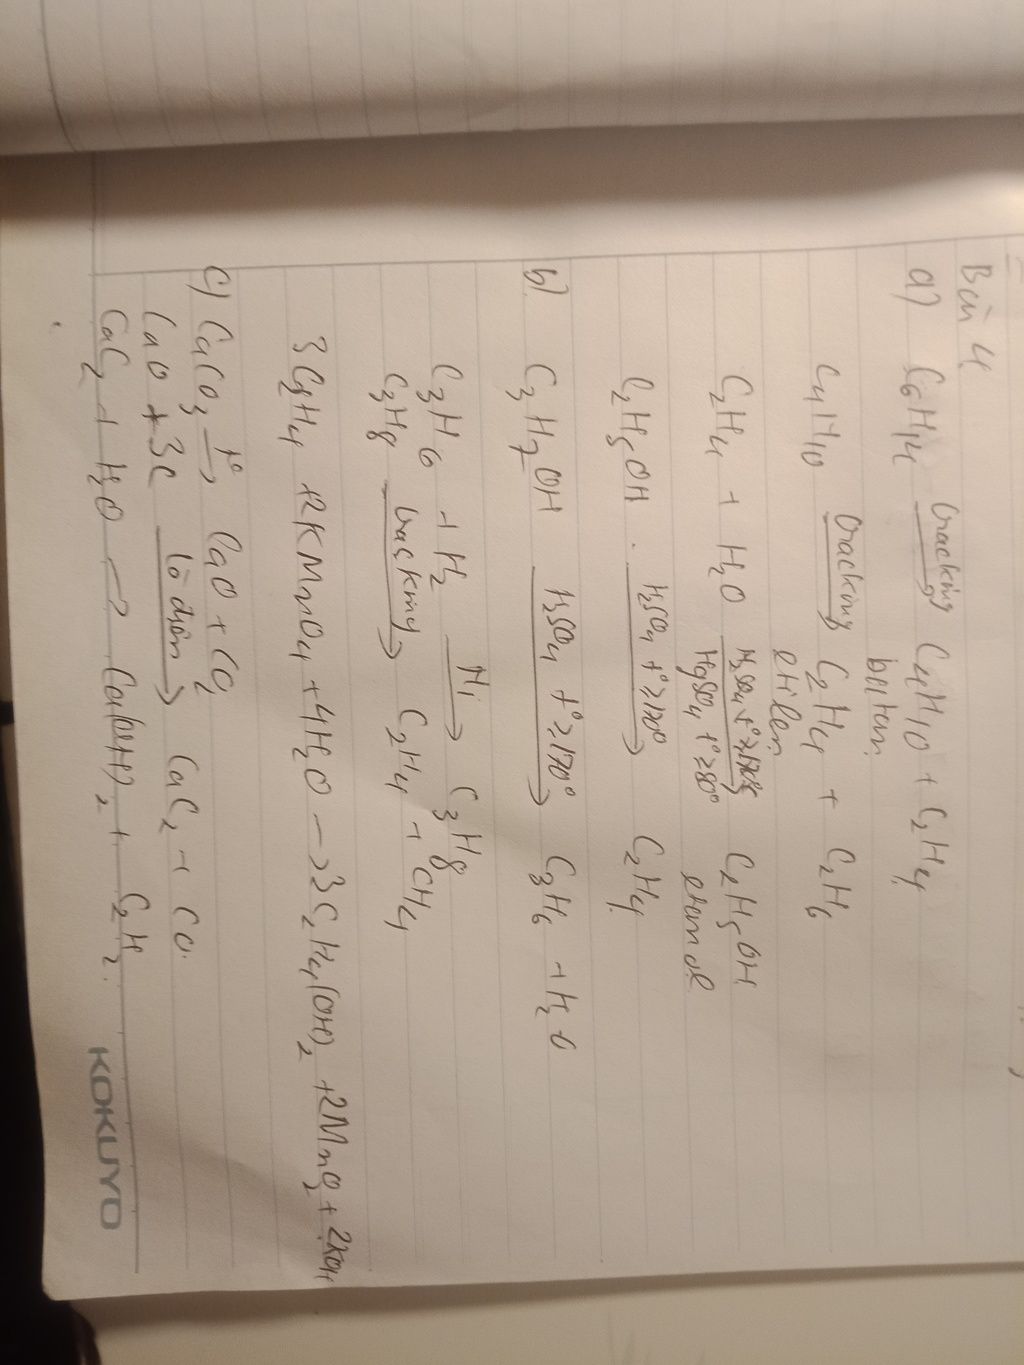 Bài 4
a) C6H14 Cracking→ C4H10 + C2H4
butan
C4H10 Cracking→ C2H4 + C2H6
etilen
C2H4 + H2O → C2H5OH
HgSO4 t° ≥ 80° etanol
C2H5OH H2SO4 t° ≥ 170°→ C2H4
b) C3H7OH H2SO4 t° ≥ 170°→ C3H6 + H2O
C3H6 + H2 Ni→ C3H8
C3H8 Cracking→ C2H4 + CH4
3C2H4 + 2KMnO4 + 4H2O → 3C2H4(OH)2 + 2MnO2 + 2KOH
c) CaCO3 t°→ CaO + CO2
CaO + 3C lò điện→ CaC2 + CO.
CaC2 + H2O → Ca(OH)2 + C2H2.
KOKUYO